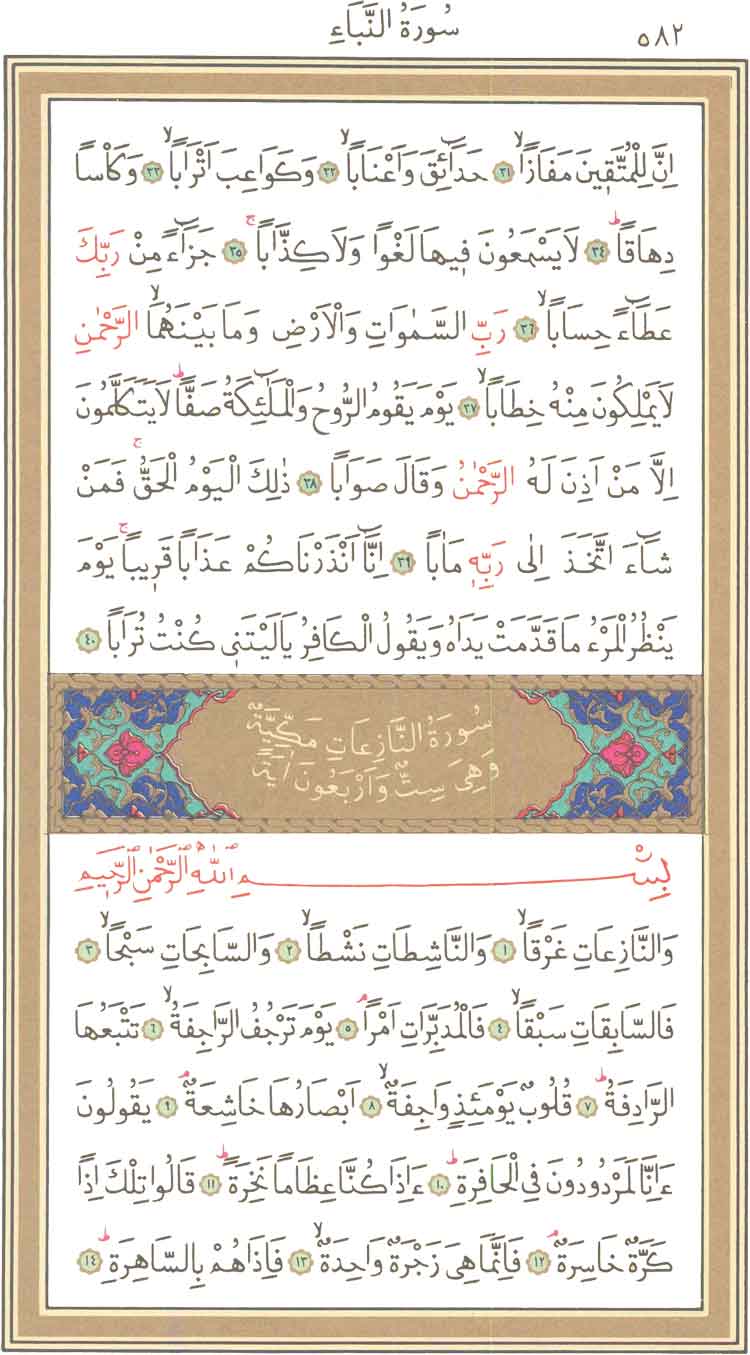 ٥٨٢ سُورَةُ النَّبَاِء
اِنَّ لِلْمُتَّقٖينَ مَفَازًاۙ ﴿٣١﴾ حَدَٓائِقَ وَاَعْنَابًاۙ ﴿٣٢﴾ وَكَوَاعِبَ اَتْرَابًاۙ ﴿٣٣﴾ وَكَاْسًا
دِهَاقًاۜ ﴿٣٤﴾ لَا يَسْمَعُونَ فٖيهَا لَغْوًا وَلَا كِذَّابًاۚ ﴿٣٥﴾ جَزَٓاءً مِنْ رَبِّكَ
عَطَٓاءً حِسَابًاۙ ﴿٣٦﴾ رَبِّ السَّمٰوَاتِ وَالْاَرْضِ وَمَا بَيْنَهُمَاۙ الرَّحْمٰنِ
لَا يَمْلِكُونَ مِنْهُ خِطَابًاۙ ﴿٣٧﴾ يَوْمَ يَقُومُ الرُّوحُ وَالْمَلٰٓئِكَةُ صَفًّاۜ لَا يَتَكَلَّمُونَ
اِلَّا مَنْ اَذِنَ لَهُ الرَّحْمٰنُ وَقَالَ صَوَابًا ﴿٣٨﴾ ذٰلِكَ الْيَوْمُ الْحَقُّۚ فَمَنْ
شَٓاءَ اتَّخَذَ اِلٰى رَبِّهٖ مَاٰبًا ﴿٣٩﴾ اِنَّٓا اَنْذَرْنَاكُمْ عَذَابًا قَرٖيبًاۚ يَوْمَ
يَنْظُرُ الْمَرْءُ مَا قَدَّمَتْ يَدَاهُ وَيَقُولُ الْكَافِرُ يَا لَيْتَنٖي كُنْتُ تُرَابًا ﴿٤٠﴾
سُورَةُ النَّازِعَاتِ مَكِّيَّةٌ
وَهِيَ سِتٌّ وَاَرْبَعُونَ اٰيَةً
بِسْمِ اللّٰهِ الرَّحْمٰنِ الرَّحٖيمِ
وَالنَّازِعَاتِ غَرْقًاۙ ﴿١﴾ وَالنَّاشِطَاتِ نَشْطًاۙ ﴿٢﴾ وَالسَّابِحَاتِ سَبْحًاۙ ﴿٣﴾
فَالسَّابِقَاتِ سَبْقًاۙ ﴿٤﴾ فَالْمُدَبِّرَاتِ اَمْرًاۢ ﴿٥﴾ يَوْمَ تَرْجُفُ الرَّاجِفَةُۙ ﴿٦﴾ تَتْبَعُهَا
الرَّادِفَةُۜ ﴿٧﴾ قُلُوبٌ يَوْمَئِذٍ وَاجِفَةٌۙ ﴿٨﴾ اَبْصَارُهَا خَاشِعَةٌۢ ﴿٩﴾ يَقُولُونَ
ءَاِنَّا لَمَرْدُودُونَ فِي الْحَافِرَةِۜ ﴿١٠﴾ ءَاِذَا كُنَّا عِظَامًا نَخِرَةًۜ ﴿١١﴾ قَالُوا تِلْكَ اِذًا
كَرَّةٌ خَاسِرَةٌۢ ﴿١٢﴾ فَاِنَّمَا هِيَ زَجْرَةٌ وَاحِدَةٌۙ ﴿١٣﴾ فَاِذَا هُمْ بِالسَّاهِرَةِۜ ﴿١٤﴾